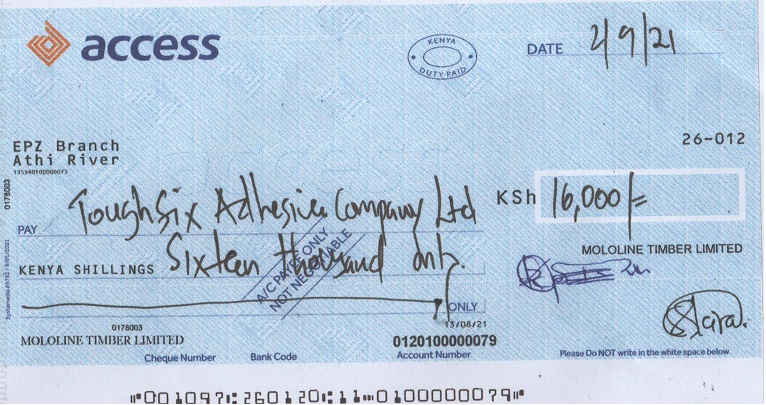 access
KENYA
DUTY PAID
DATE 2/9/21
26-012
EPZ Branch
Athi River
135940100000079
0178003
PAY Toughsix Adhesives Company Ltd
KSh 16,000/=
KENYA SHILLINGS Sixteen thousand only.
A/C PAYEE ONLY
NOT NEGOTIABLE
MOLOLINE TIMBER LIMITED
ONLY
13/08/21
0178003
MOLOLINE TIMBER LIMITED
0120100000079
Cheque Number Bank Code Account Number
Please Do NOT write in the white space below
⑈001097⑆260120⑆11⑈0100000079⑈